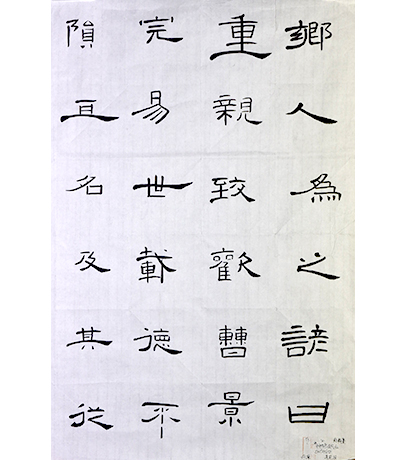 鄉人為之諺曰
重親致歡曹景
完易世載德不
隕亙名及其從